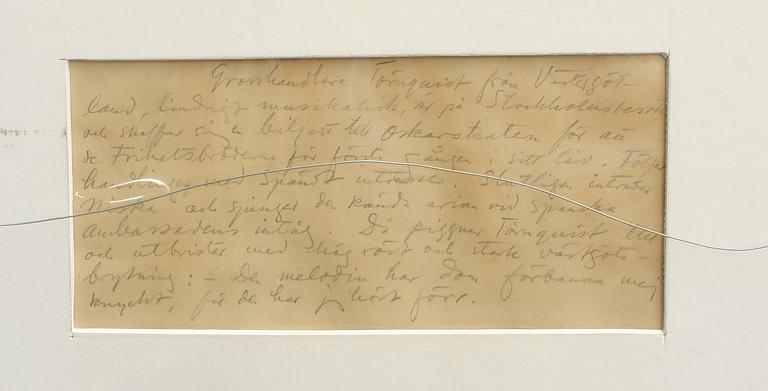 Grosshandlare Törnquist från Västergöt-
land, lindrigt musikalisk, är på Stockholmsbesök
och skaffar sig en biljett till Oskarsteatern för att
se Frihetsbröderna för första gången i sitt liv. Följer
handlingen med spändt intresse. Slutligen inträder
och sjunger den kända arian vid spanska
ambassadens intåg. Då piggnar Törnquist till
och utbrister med hög röst och stark västgöta-
brytning: – Den melodin har dom förbanna mej
knyckt, för den har jag hört förr.